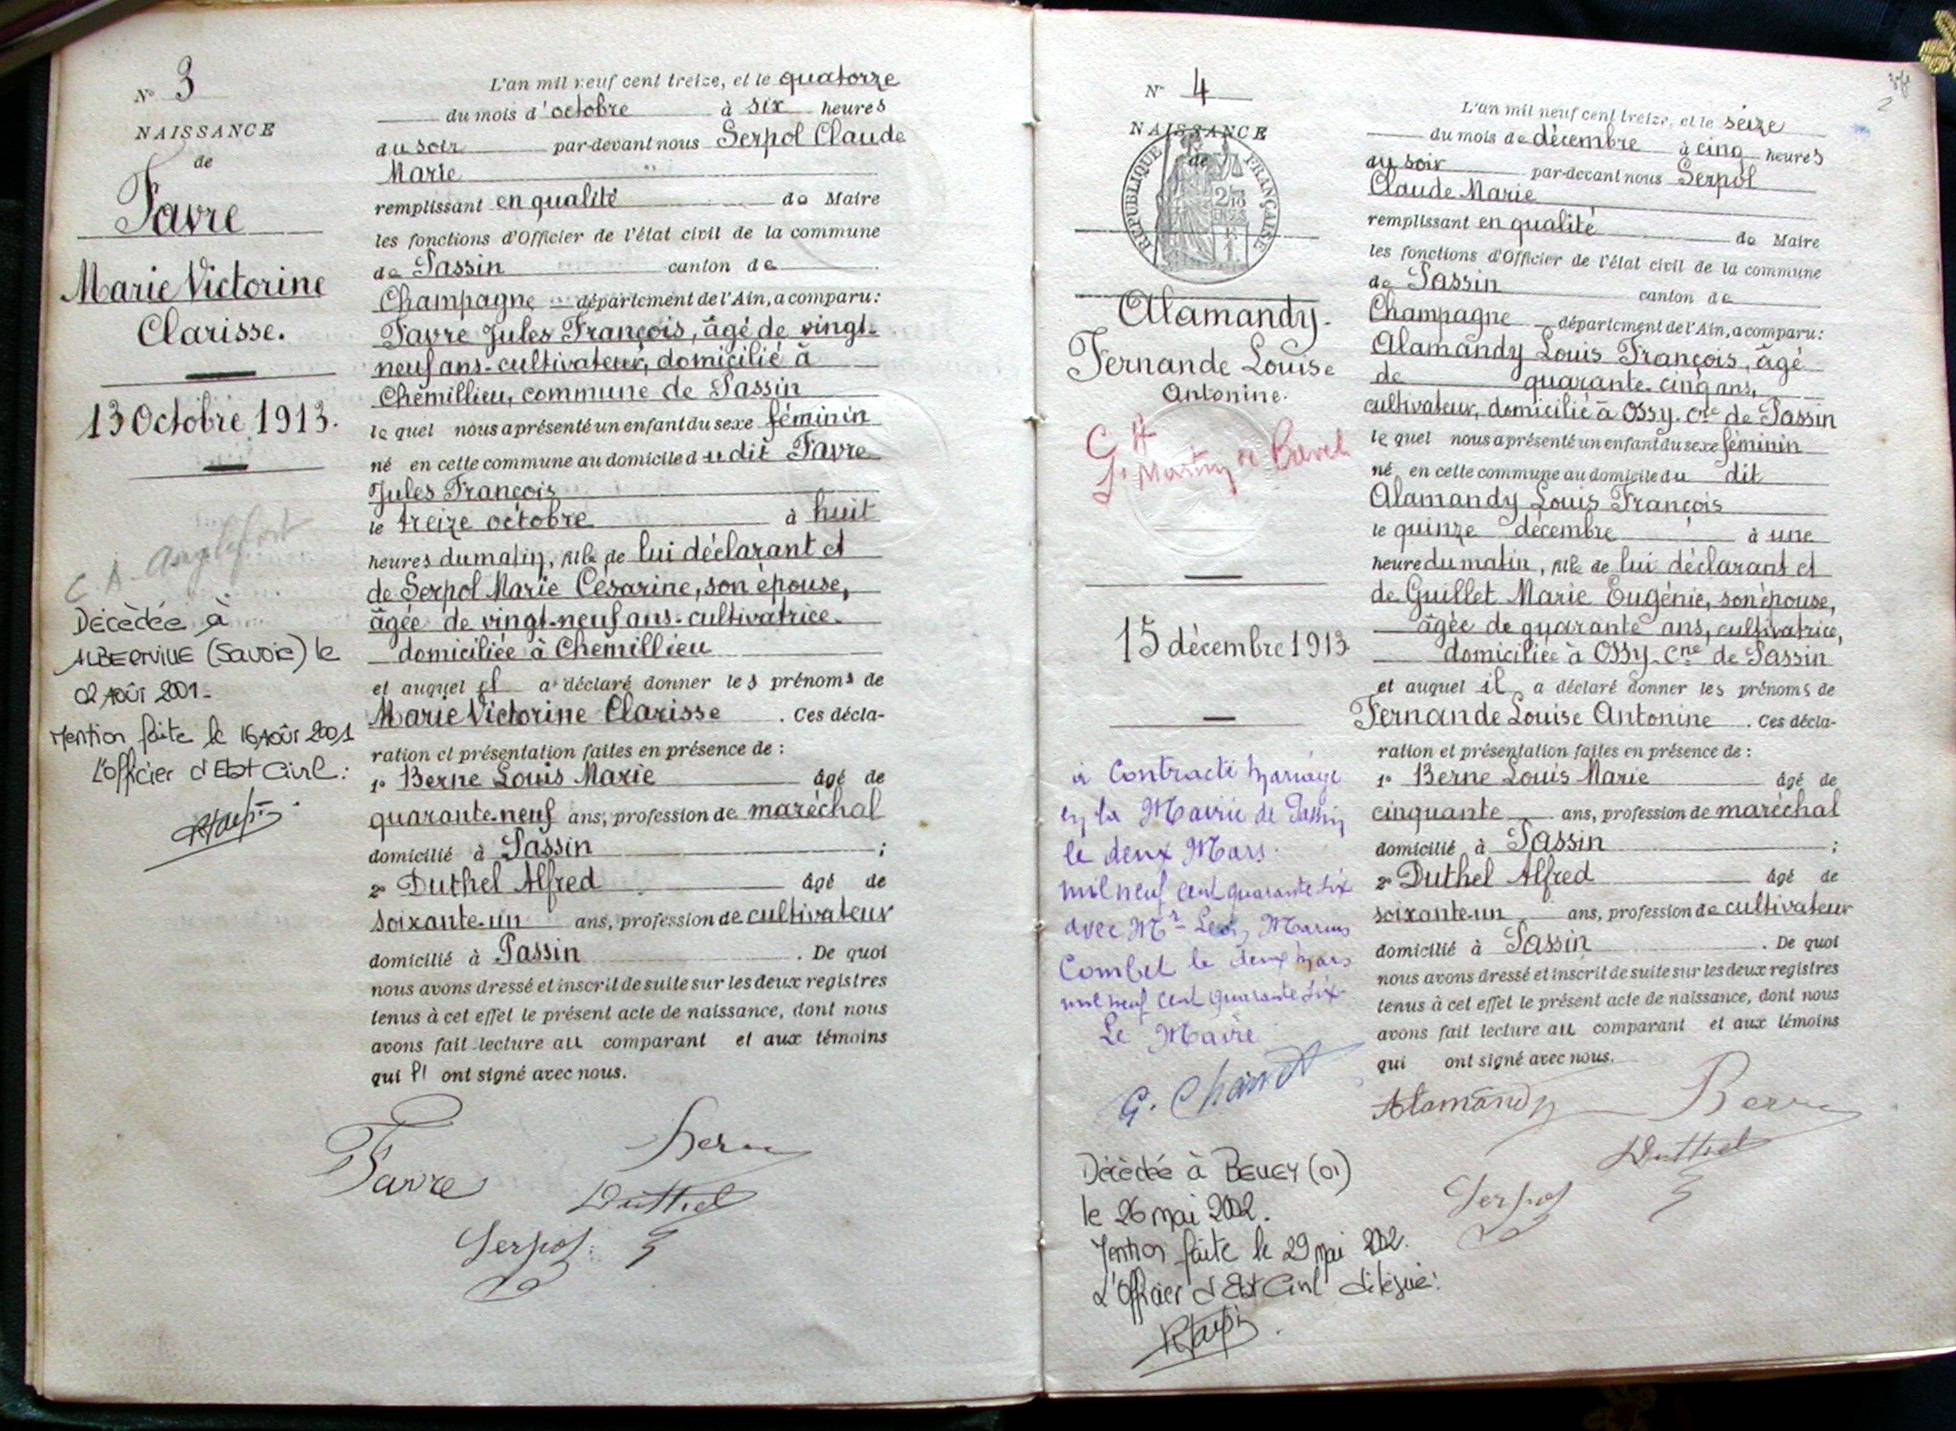 N° 3
NAISSANCE
de
Favre
Marie Victorine
Clarisse.
13 Octobre 1913.
C A Anglefort
Décédée à
ALBERVILLE (Savoie) le
02 Août 2001-
Mention faite le 16 Août 2001
L'officier d'Etat Civil :
L'an mil neuf cent treize, et le quatorze
du mois d'octobre à six heures
du soir par-devant nous Serpol Claude
Marie
remplissant en qualité de Maire
les fonctions d'Officier de l'état civil de la commune
de Passin canton de
Champagne département de l'Ain, a comparu :
Favre Jules François, âgé de vingt-
neuf ans-cultivateur, domicilié à
Chemillieu, commune de Passin
le quel nous a présenté un enfant du sexe féminin
né en cette commune au domicile du dit Favre
Jules François
le treize octobre à huit
heures du matin, fille de lui déclarant et
de Serpol Marie Césarine, son épouse,
âgée de vingt-neuf ans-cultivatrice
domiciliée à Chemillieu
et auquel il a déclaré donner les prénoms de
Marie Victorine Clarisse . Ces décla-
ration et présentation faites en présence de :
1° Berne Louis Marie âgé de
quarante-neuf ans, profession de maréchal
domicilié à Passin ;
2° Duthel Alfred âgé de
soixante-un ans, profession de cultivateur
domicilié à Passin . De quoi
nous avons dressé et inscrit de suite sur les deux registres
tenus à cet effet le présent acte de naissance, dont nous
avons fait lecture au comparant et aux témoins
qui ont signé avec nous.
Favre Berne
Duthel
Serpol
N° 4
NAISSANCE
de
RÉPUBLIQUE FRANÇAISE
Alamandy.
Fernande Louise
Antonine.
15 décembre 1913
a contracté mariage
en la Mairie de Passin
le deux Mars
mil neuf cent quarante six
avec Mr Léon, Marius
Combet le deux Mars
mil neuf cent quarante six
Le Maire
Décédée à BELLEY (01)
le 26 mai 2002.
Mention faite le 29 mai 2002.
L'Officier d'Etat Civil délégué :
2
L'an mil neuf cent treize, et le seize
du mois de décembre à cinq heures
du soir par-devant nous Serpol
Claude Marie
remplissant en qualité de Maire
les fonctions d'Officier de l'état civil de la commune
de Passin canton de
Champagne département de l'Ain, a comparu :
Alamandy Louis François, âgé
de quarante-cinq ans,
cultivateur, domicilié à Ossy. Cne de Passin
le quel nous a présenté un enfant du sexe féminin
né en cette commune au domicile du dit
Alamandy Louis François
le quinze décembre à une
heure du matin, fille de lui déclarant et
de Guillet Marie Eugénie, son épouse,
âgée de quarante ans, cultivatrice,
domiciliée à Ossy. Cne de Passin
et auquel il a déclaré donner les prénoms de
Fernande Louise Antonine . Ces décla-
ration et présentation faites en présence de :
1° Berne Louis Marie âgé de
cinquante ans, profession de maréchal
domicilié à Passin ;
2° Duthel Alfred âgé de
soixante-un ans, profession de cultivateur
domicilié à Passin . De quoi
nous avons dressé et inscrit de suite sur les deux registres
tenus à cet effet le présent acte de naissance, dont nous
avons fait lecture au comparant et aux témoins
qui ont signé avec nous.
Alamandy Berne
Duthel
Serpol